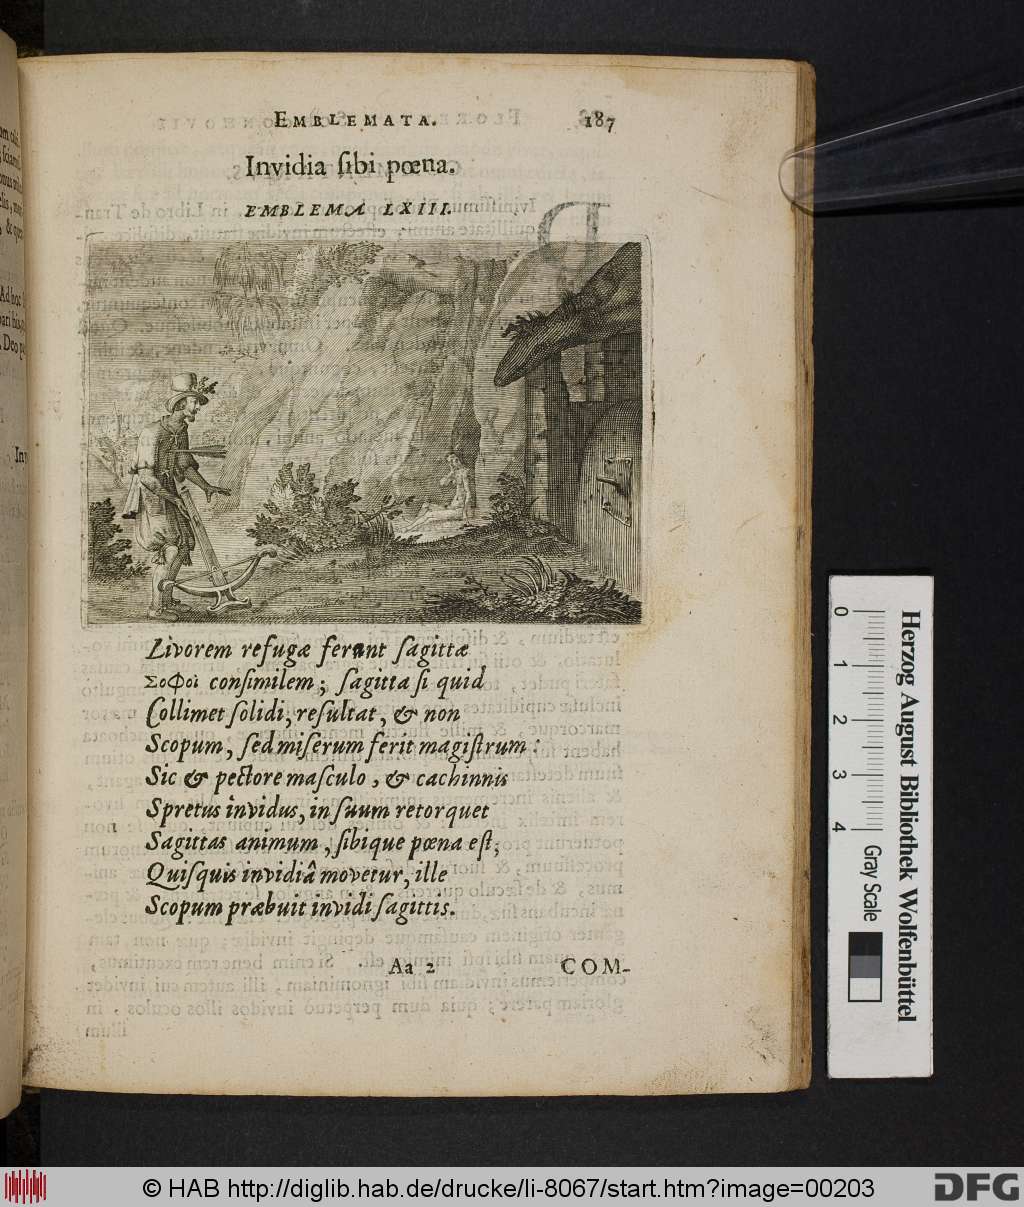 EMBLEMATA. 187
Invidia ſibi pœna.
EMBLEMA LXIII.
Livorem refugæ ferunt ſagittæ
Σοφοὶ conſimilem; ſagitta ſi quid
Collimet ſolidi, reſultat, & non
Scopum, ſed miſerum ferit magiſtrum:
Sic & pectore maſculo, & cachinnis
Spretus invidus, in ſuum retorquet
Sagittas animum, ſibique pœna eſt;
Quiſquis invidiâ movetur, ille
Scopum præbuit invidi ſagittis.
Aa 2 COM-
0 1 2 3 4
Gray Scale
Herzog August Bibliothek Wolfenbüttel
© HAB http://diglib.hab.de/drucke/li-8067/start.htm?image=00203
DFG